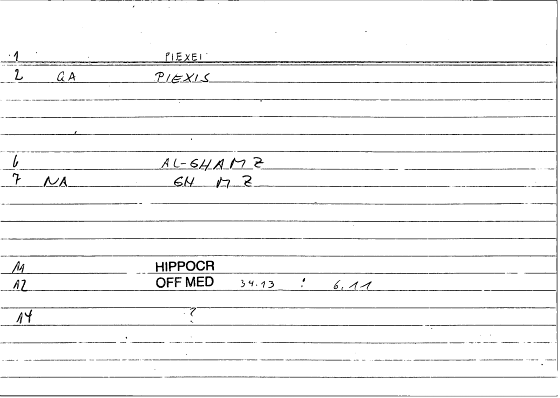 1 PIEXEI
2 GA PIEXIS
6 AL-GHAMZ
7 NA GH M Z
11 HIPPOCR
12 OFF MED 34.13 : 6.11
14 ?